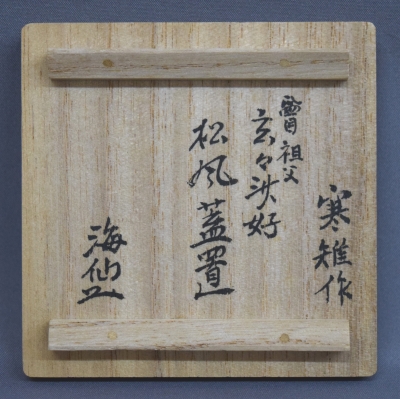 寒雉作
曽祖父
玄々斎好
松風蓋置
海仙